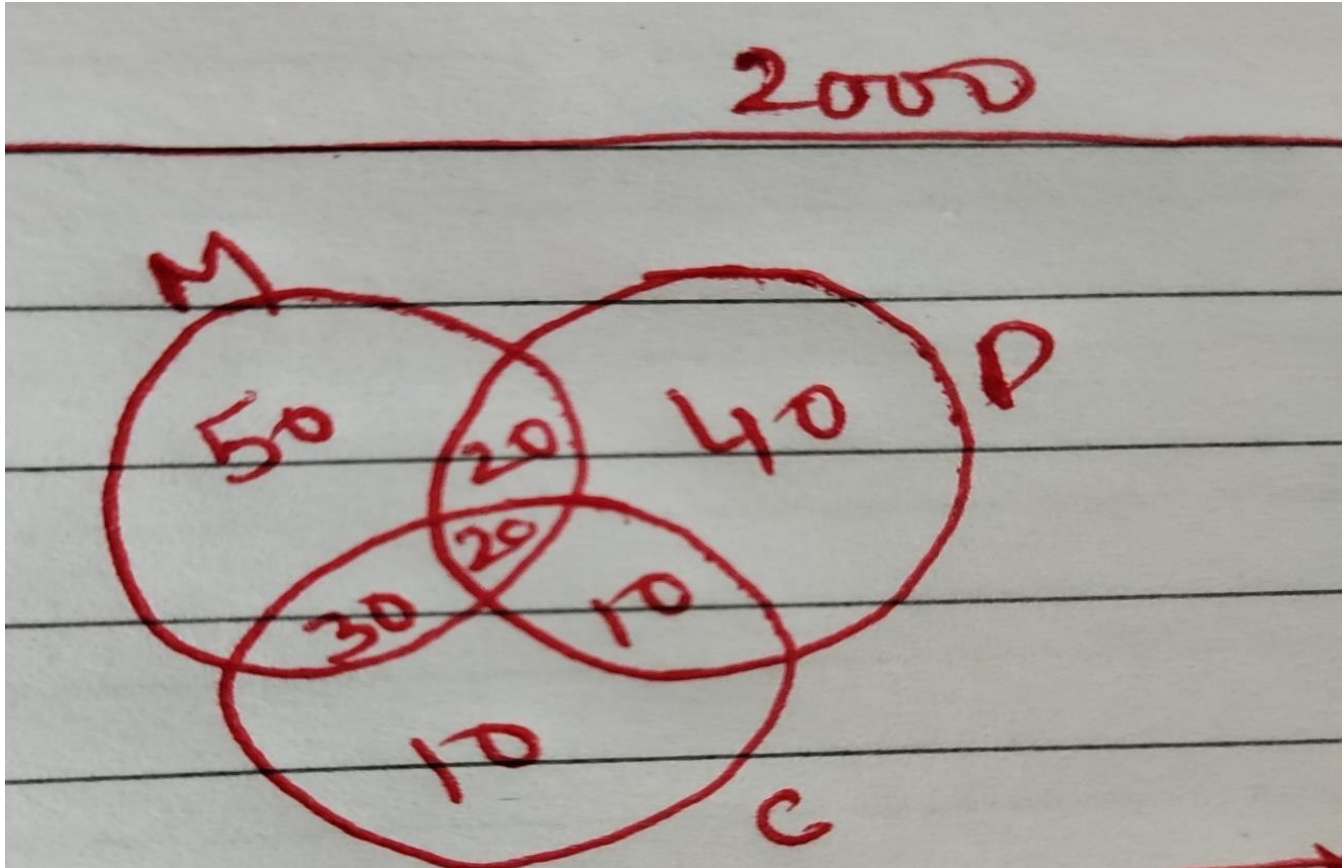 2000
M
P
50
20
40
20
30
10
10
C